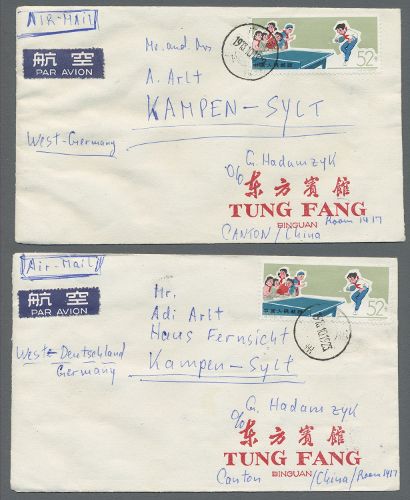 AIR-MAIL
航空
PAR AVION
52
中国人民邮政
Mr. and Mrs
A. Arlt
KAMPEN-SYLT
West-Germany
G. Hadamzyk
c/o
东方賓館
TUNG FANG
BINGUAN
Room 1417
CANTON/China
Air-Mail
航空
PAR AVION
52
中国人民邮政
Mr.
Adi Arlt
Haus Fernsicht
Kampen-Sylt
West-Deutschland
Germany
G. Hadamzyk
c/o
东方賓館
TUNG FANG
BINGUAN
Canton /China/Room 1417